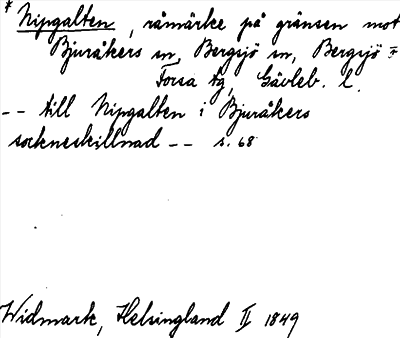 * Nipgalten, råmärke på gränsen mot
Bjuråkers sn, Bergsjö sn, Bergsjö o
Forsa tg, Gävleb. l.
-- till Nipgalten i Bjuråkers
sockneskillnad -- s. 68
Widmark, Helsingland II 1849